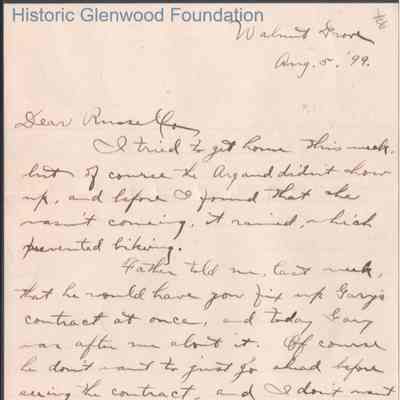 Historic Glenwood Foundation
Walnut Grove
Aug. 5, '99.
Dear Russell,
I tried to get home this week,
but of course the Argand didn't show
up, and before I found that she
wasn't coming, it rained, which
prevented biking.
Father told me, last week,
that he would have you fix up Gary's
contract at once, and today Gary
was after me about it. Of course
he don't want to just go ahead before
seeing the contract, and I don't want